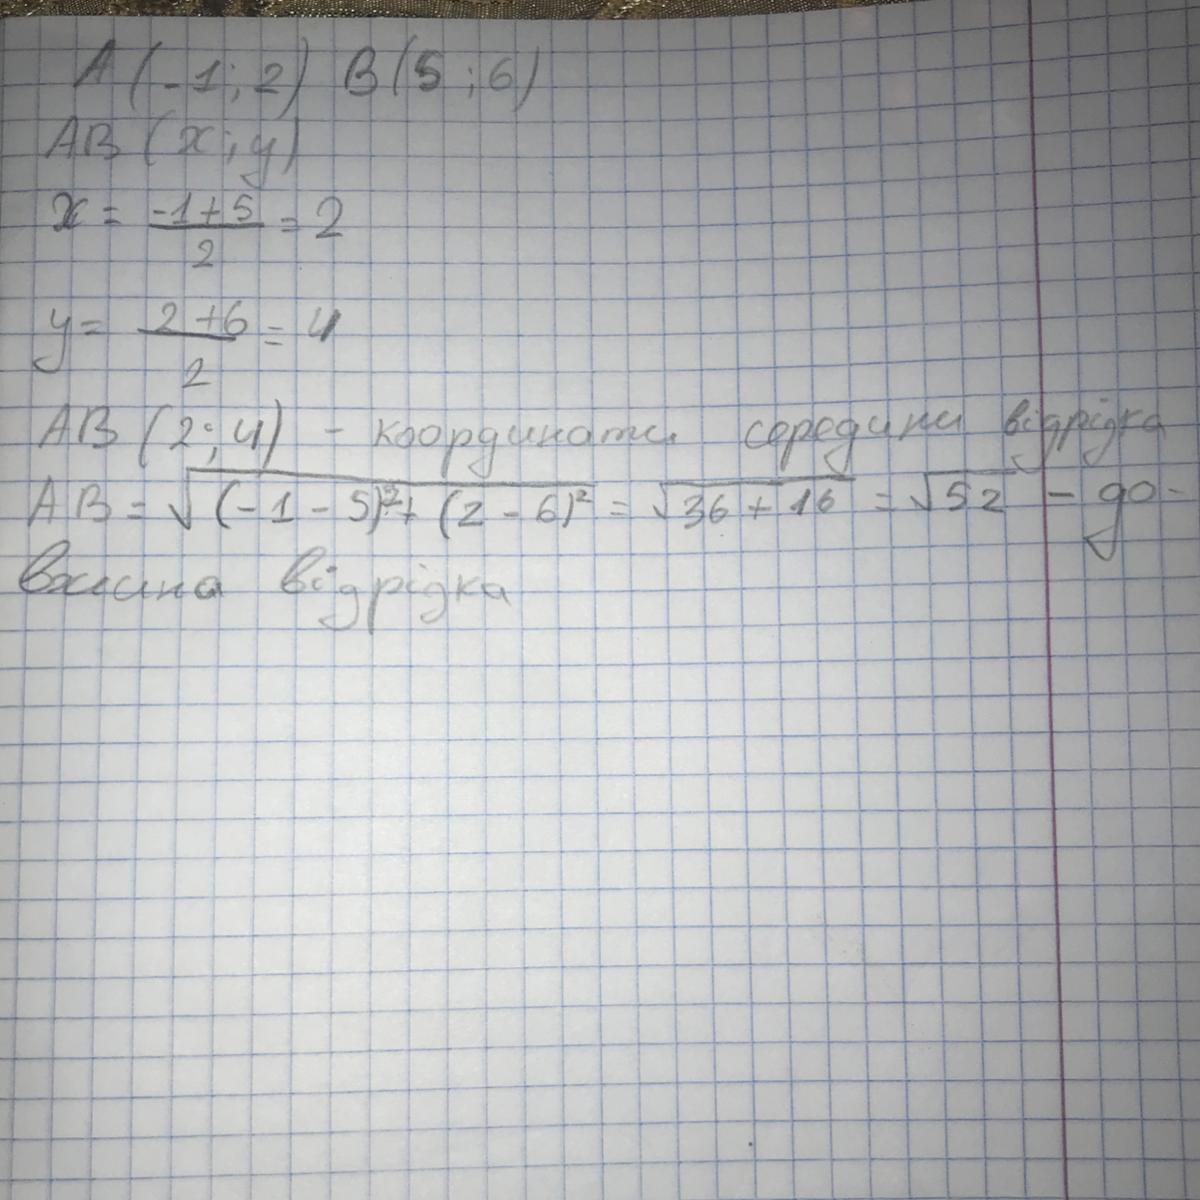 A(-1; 2) B(5; 6)
AB(x; y)
x = (-1+5)/2 = 2
y = (2+6)/2 = 4
AB (2; 4) - координати середини відрідка
AB = √((-1-5)²+(2-6)²) = √(36+16) = √52 - до-
вжина відрідка